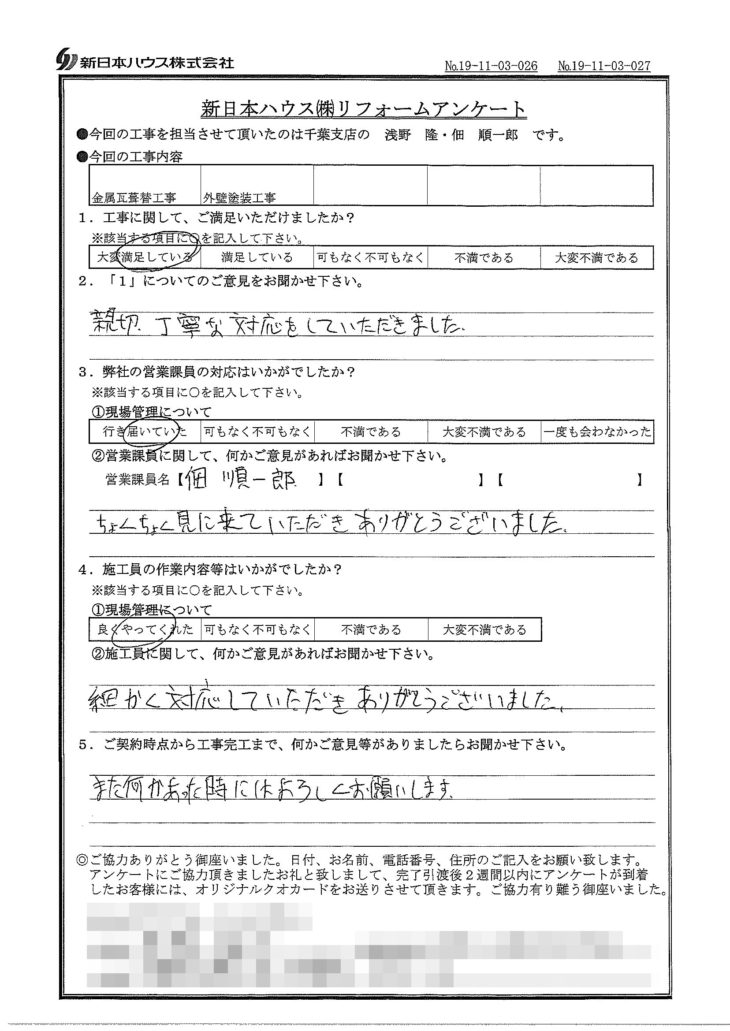 新日本ハウス株式会社
No.19-11-03-026 No.19-11-03-027
新日本ハウス㈱リフォームアンケート
●今回の工事を担当させて頂いたのは千葉支店の 浅野 隆・佃 順一郎 です。
●今回の工事内容
金属瓦葺替工事 外壁塗装工事
1．工事に関して、ご満足いただけましたか？
※該当する項目に○を記入して下さい。
大変満足している 満足している 可もなく不可もなく 不満である 大変不満である
2．「1」についてのご意見をお聞かせ下さい。
親切、丁寧な対応をしていただきました。
3．弊社の営業課員の対応はいかがでしたか？
※該当する項目に○を記入して下さい。
①現場管理について
行き届いていた 可もなく不可もなく 不満である 大変不満である 一度も会わなかった
②営業課員に関して、何かご意見があればお聞かせ下さい。
営業課員名【佃 順一郎 】【 】【 】
ちょくちょく見に来ていただきありがとうございました。
4．施工員の作業内容等はいかがでしたか？
※該当する項目に○を記入して下さい。
①現場管理について
良くやってくれた 可もなく不可もなく 不満である 大変不満である
②施工員に関して、何かご意見があればお聞かせ下さい。
細かく対応していただきありがとうございました。
5．ご契約時点から工事完工まで、何かご意見等がありましたらお聞かせ下さい。
また何かあった時にはよろしくお願いします。
◎ご協力ありがとう御座いました。日付、お名前、電話番号、住所のご記入をお願い致します。
アンケートにご協力頂きましたお礼と致しまして、完了引渡後2週間以内にアンケートが到着
したお客様には、オリジナルクオカードをお送りさせて頂きます。ご協力有り難う御座いました。